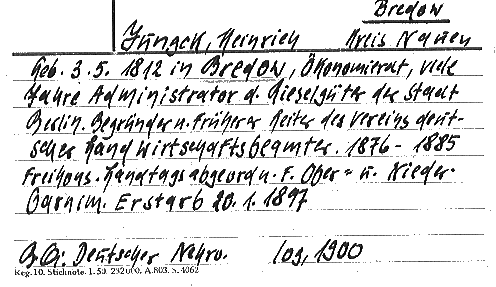 Bredow
Jungck, Heinrich Kreis Nauen
Geb. 3.5. 1812 in Bredow, Ökonomierat, viele
Jahre Administrator d. Rieselgüter der Stadt
Berlin. Begründer u. früherer Leiter des Vereins deut-
scher Landwirtschaftsbeamter. 1876 - 1885
Freikons. Landtagsabgeordn. f. Ober= u. Nieder-
Barnim. Er starb 20.1.1897
Deutscher Nekro. 1900
Reg. 10. Stichnote. 1. 50. 232000. A.803. S. 4062